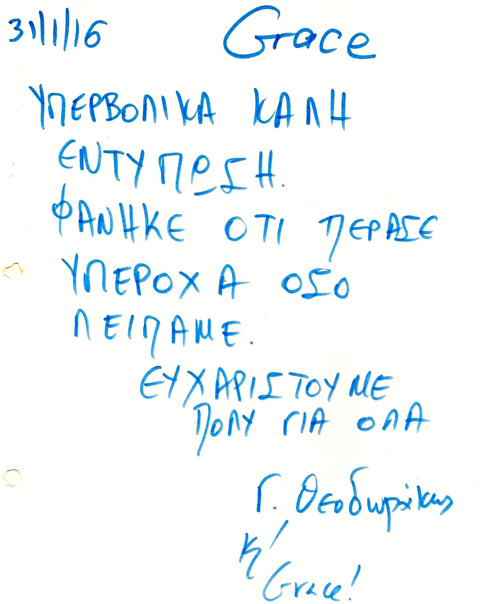 31/1/16 Grace
ΥΠΕΡΒΟΛΙΚΑ ΚΑΛΗ
ΕΝΤΥΠΩΣΗ.
ΦΑΝΗΚΕ ΟΤΙ ΠΕΡΑΣΕ
ΥΠΕΡΟΧΑ ΟΣΟ
ΛΕΙΠΑΜΕ.
ΕΥΧΑΡΙΣΤΟΥΜΕ
ΠΟΛΥ ΓΙΑ ΟΛΑ
Γ. Θεοδωράκης
Κ/
Grace!